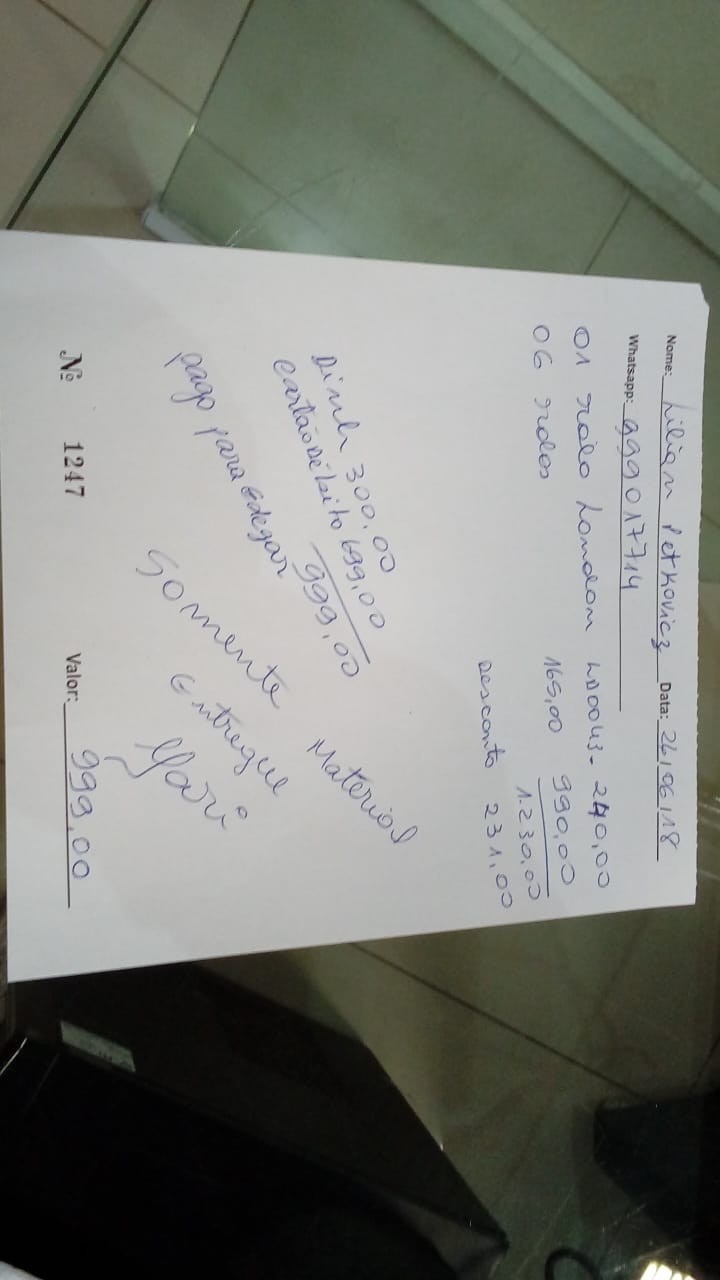 Nome: Lilian Petkovicz Data: 26/06/18
Whatsapp: 999017714
01 rolo London LD0043 - 240,00
06 rolos 165,00 990,00
1.230,00
Desconto 231,00
Dinh 300,00
cartão Débito 699,00
999,00
pago para Edegar
Material
Somente
Entregue
Nº 1247 Valor: 999,00